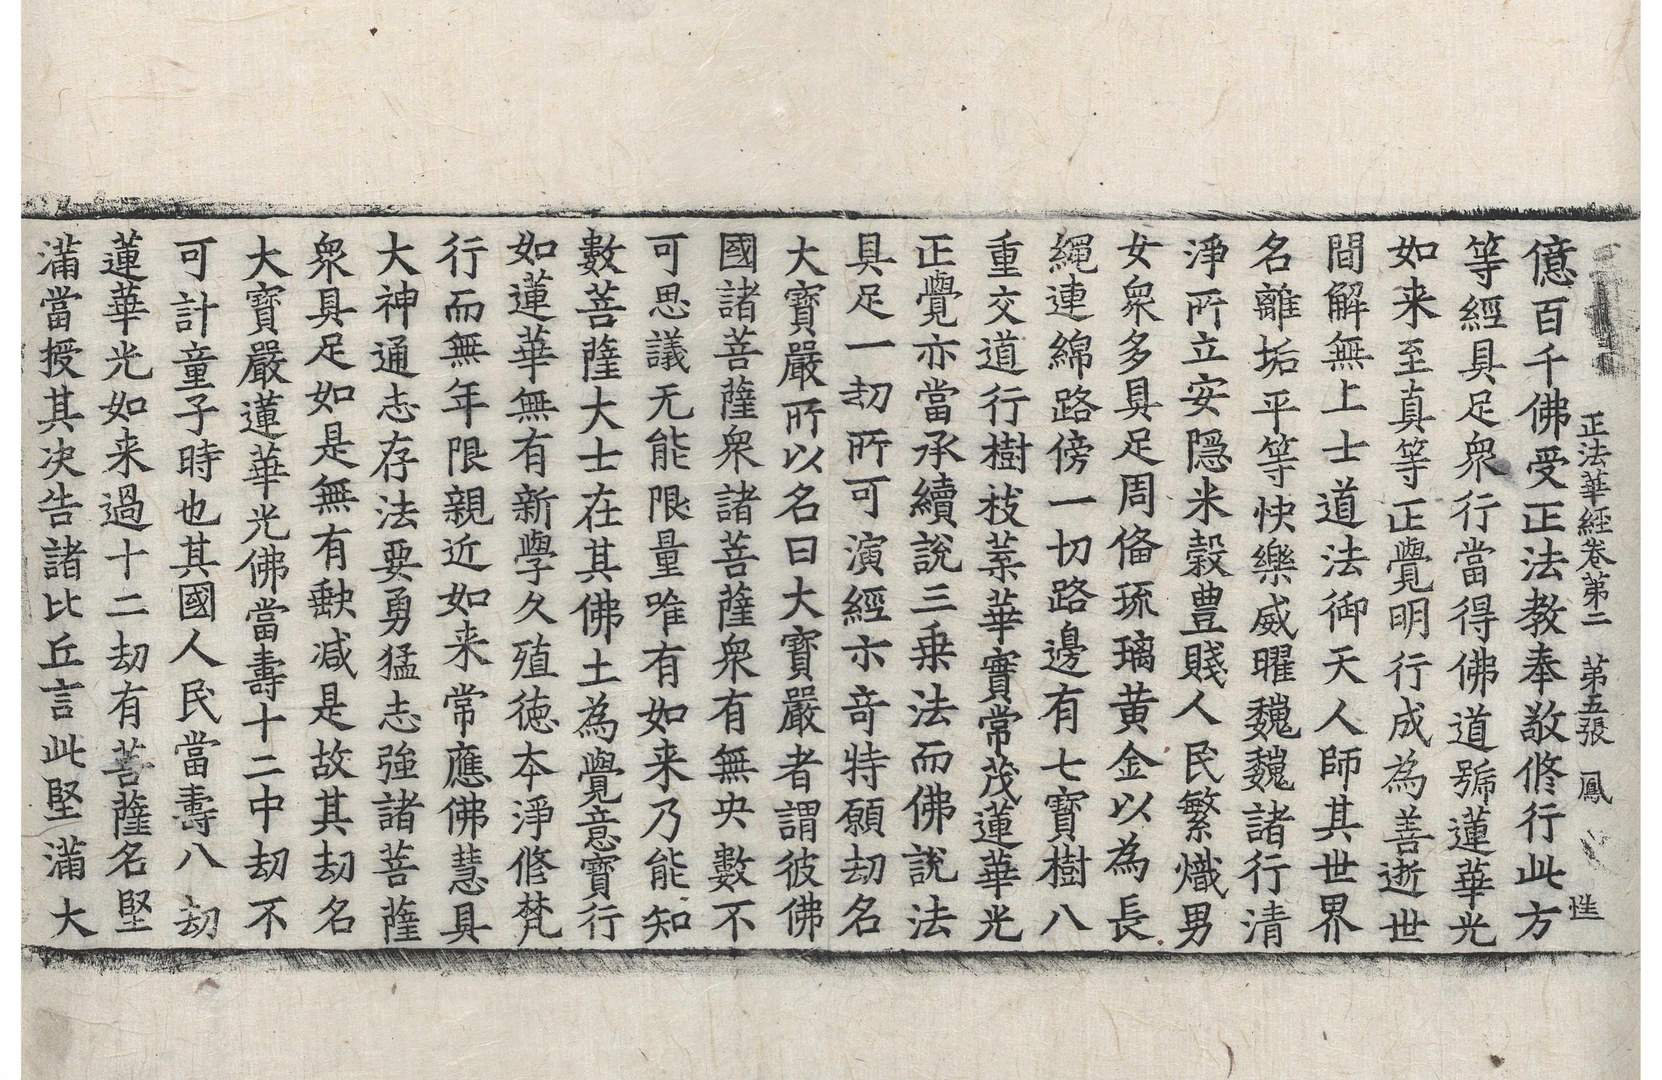 正法華經卷第二 第五張 鳳
億百千佛受正法教奉敬修行此方
等經具足衆行當得佛道號蓮華光
如来至真等正覺明行成為善逝世
間解無上士道法御天人師其世界
名離垢平等快樂威曜巍巍諸行清
淨所立安隱米穀豊賤人民繁熾男
女衆多具足周俻琉璃黄金以為長
繩連綿路傍一切路邊有七寶樹八
重交道行樹枝葉華實常茂蓮華光
正覺亦當承續說三乗法而佛說法
具足一劫所可演經亦竒特願劫名
大寶嚴所以名曰大寶嚴者謂彼佛
國諸菩薩衆諸菩薩衆有無央數不
可思議无能限量唯有如来乃能知
數菩薩大士在其佛土為覺意寶行
如蓮華無有新學久殖徳本淨修梵
行而無年限親近如来常應佛慧具
大神通志存法要勇猛志強諸菩薩
衆具足如是無有缺减是故其劫名
大寶嚴蓮華光佛當壽十二中劫不
可計童子時也其國人民當壽八劫
蓮華光如来過十二劫有菩薩名堅
滿當授其决告諸比丘言此堅滿大